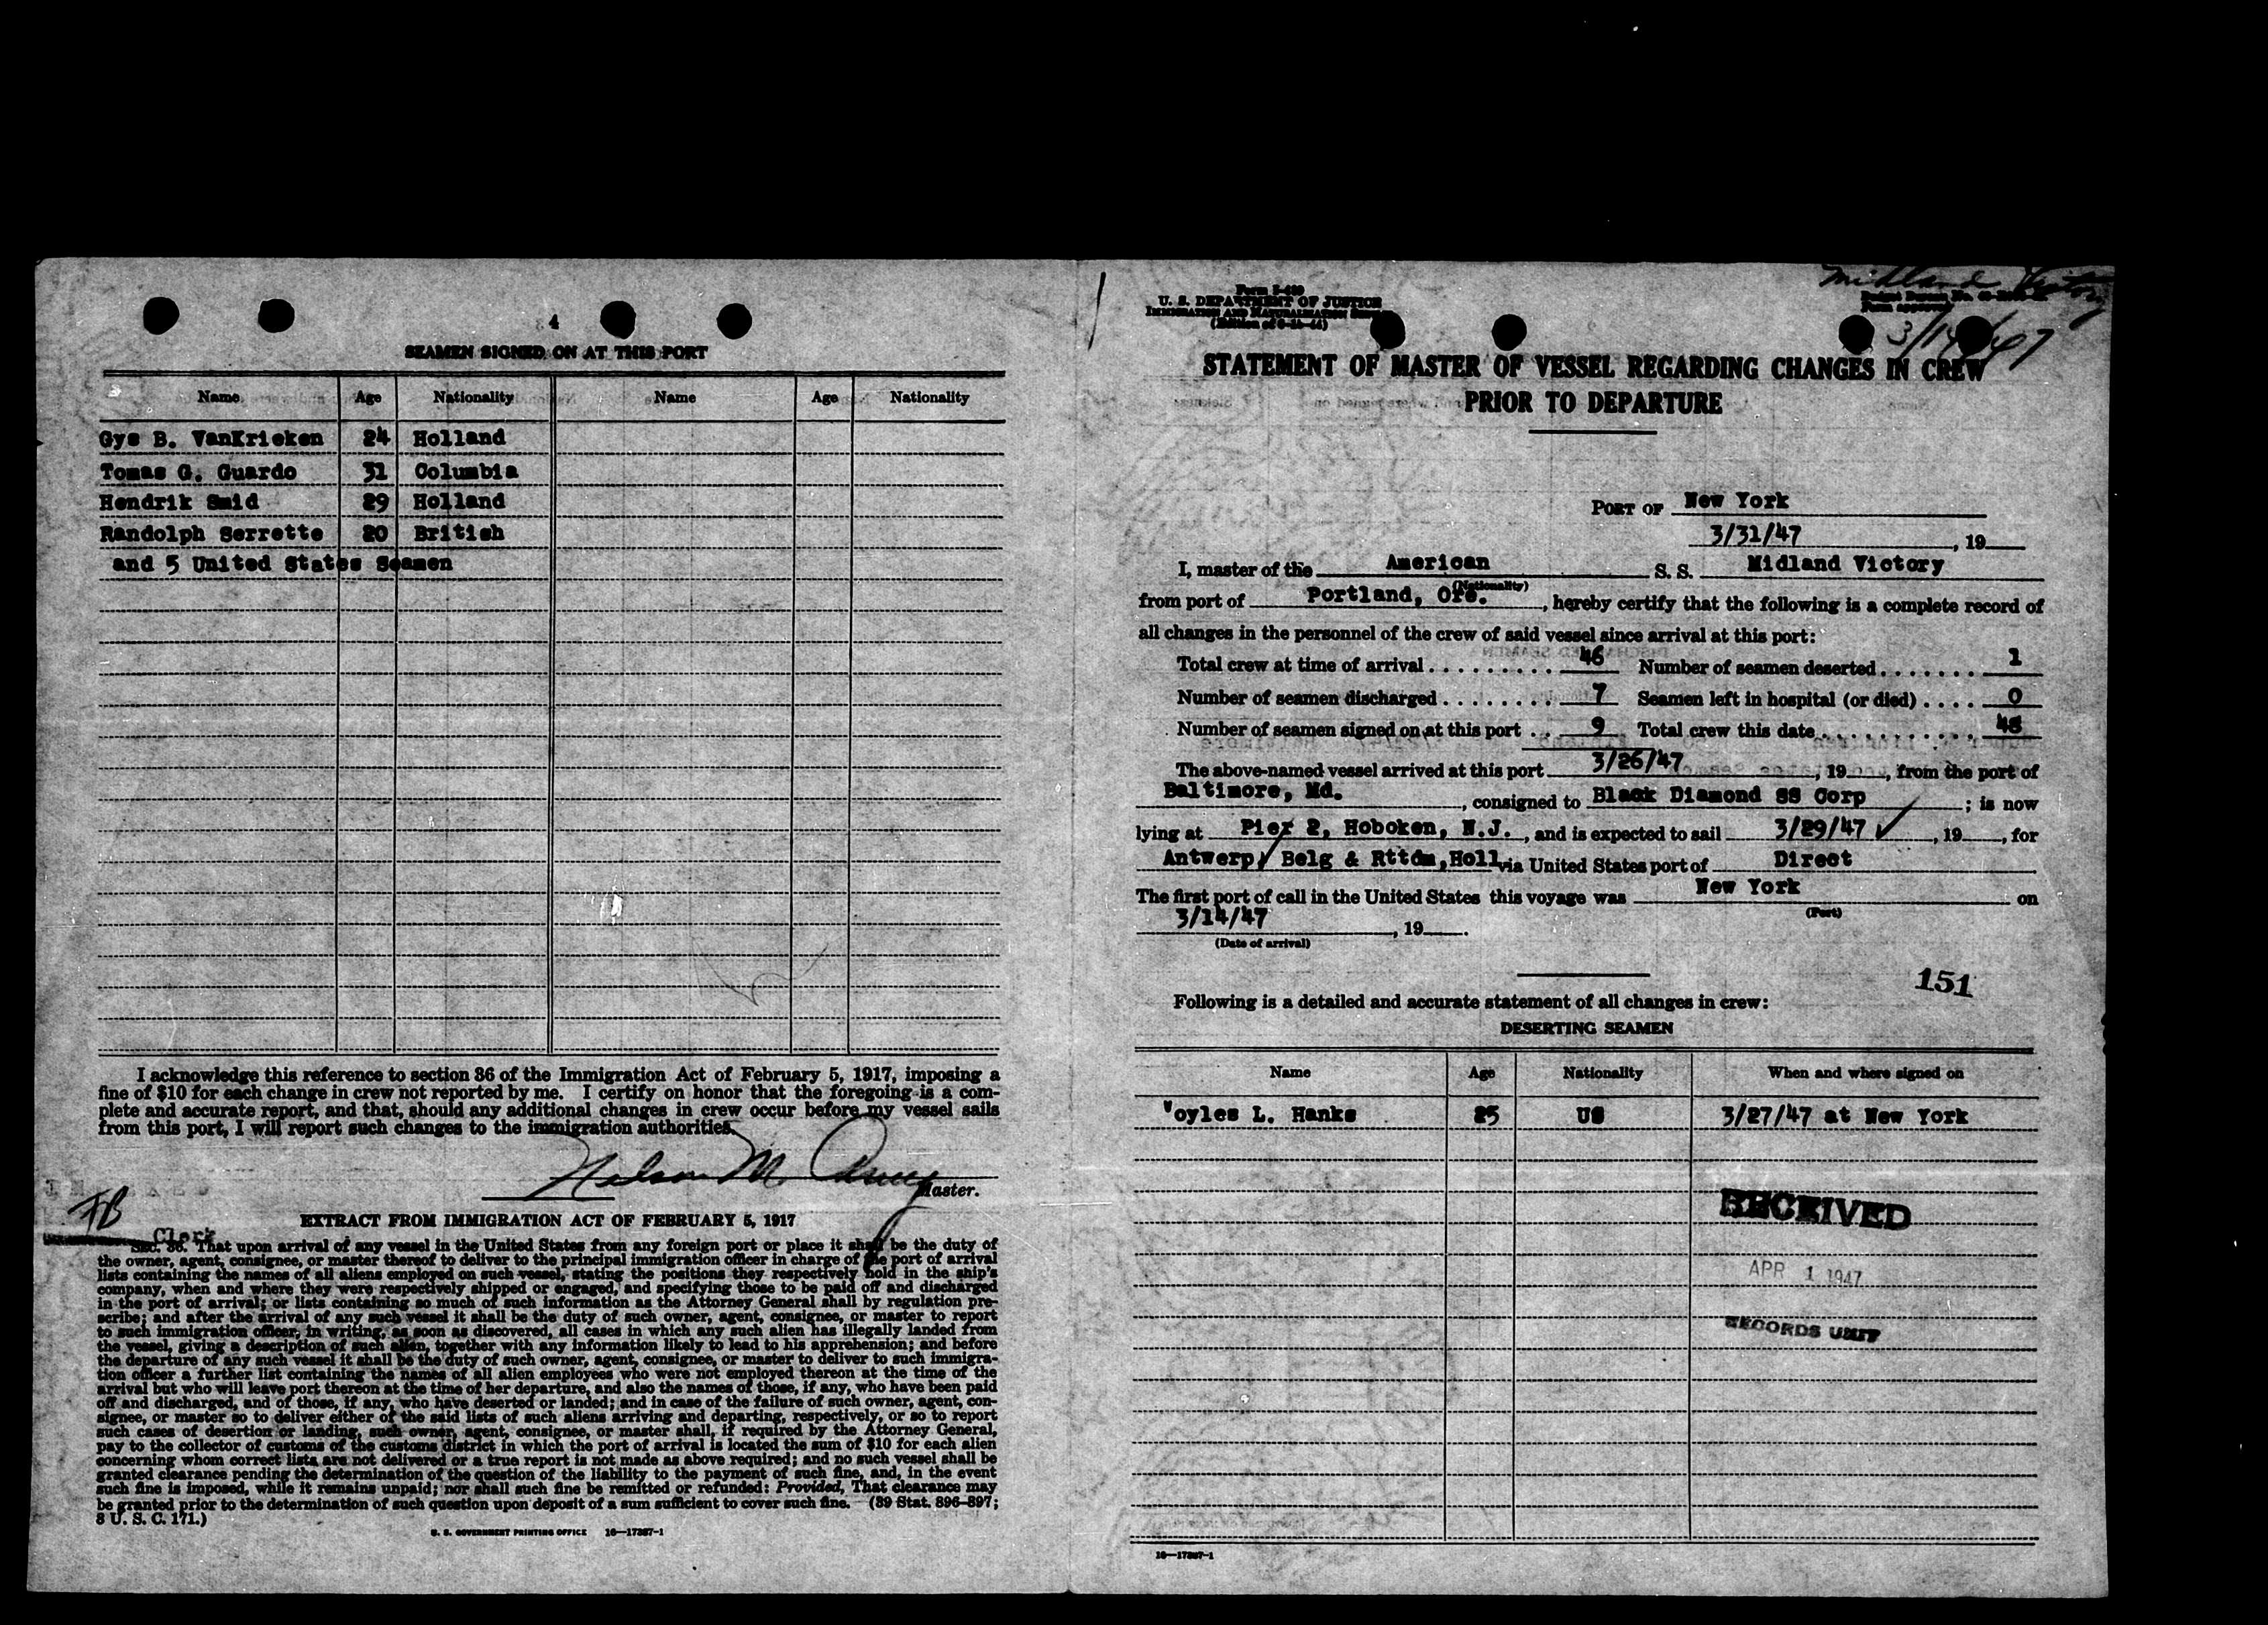 4
SEAMEN SIGNED ON AT THIS PORT
Name Age Nationality Name Age Nationality
Gys B. VanKrieken 24 Holland
Tomas G. Guardo 31 Columbia
Hendrik Smid 29 Holland
Randolph Serrette 20 British
and 5 United States Seamen
I acknowledge this reference to section 36 of the Immigration Act of February 5, 1917, imposing a
fine of $10 for each change in crew not reported by me. I certify on honor that the foregoing is a com-
plete and accurate report, and that, should any additional changes in crew occur before my vessel sails
from this port, I will report such changes to the immigration authorities.
Nelson M.
Master.
FB
Clerk
EXTRACT FROM IMMIGRATION ACT OF FEBRUARY 5, 1917
SEC. 36. That upon arrival of any vessel in the United States from any foreign port or place it shall be the duty of
the owner, agent, consignee, or master thereof to deliver to the principal immigration officer in charge of the port of arrival
lists containing the names of all aliens employed on such vessel, stating the positions they respectively hold in the ship's
company, when and where they were respectively shipped or engaged, and specifying those to be paid off and discharged
in the port of arrival; or lists containing so much of such information as the Attorney General shall by regulation pre-
scribe; and after the arrival of any such vessel it shall be the duty of such owner, agent, consignee, or master to report
to such immigration officer, in writing, as soon as discovered, all cases in which any such alien has illegally landed from
the vessel, giving a description of such alien, together with any information likely to lead to his apprehension; and before
the departure of any such vessel it shall be the duty of such owner, agent, consignee, or master to deliver to such immigra-
tion officer a further list containing the names of all alien employees who were not employed thereon at the time of the
arrival but who will leave port thereon at the time of her departure, and also the names of those, if any, who have been paid
off and discharged, and of those, if any, who have deserted or landed; and in case of the failure of such owner, agent, con-
signee, or master so to deliver either of the said lists of such aliens arriving and departing, respectively, or so to report
such cases of desertion or landing, such owner, agent, consignee, or master shall, if required by the Attorney General,
pay to the collector of customs of the customs district in which the port of arrival is located the sum of $10 for each alien
concerning whom correct lists are not delivered or a true report is not made as above required; and no such vessel shall be
granted clearance pending the determination of the question of the liability to the payment of such fine, and, in the event
such fine is imposed, while it remains unpaid; nor shall such fine be remitted or refunded: Provided, That clearance may
be granted prior to the determination of such question upon deposit of a sum sufficient to cover such fine. (39 Stat. 896-897;
8 U. S. C. 171.)
U. S. GOVERNMENT PRINTING OFFICE 16—17387-1
Midland Victory
3/14/47
Form I-489
U. S. DEPARTMENT OF JUSTICE
IMMIGRATION AND NATURALIZATION
STATEMENT OF MASTER OF VESSEL REGARDING CHANGES IN CREW
PRIOR TO DEPARTURE
PORT OF New York
3/31/47, 19
I, master of the American S. S. Midland Victory
(Nationality)
from port of Portland, Ore., hereby certify that the following is a complete record of
all changes in the personnel of the crew of said vessel since arrival at this port:
Total crew at time of arrival 46 Number of seamen deserted 1
Number of seamen discharged 7 Seamen left in hospital (or died) 0
Number of seamen signed on at this port 9 Total crew this date 48
The above-named vessel arrived at this port 3/26/47, 19, from the port of
Baltimore, Md., consigned to Black Diamond SS Corp; is now
lying at Pier 2, Hoboken, N.J., and is expected to sail 3/29/47, 19, for
Antwerp, Belg & Rttdm, Holl via United States port of Direct
The first port of call in the United States this voyage was New York on
(Port)
3/14/47, 19.
(Date of arrival)
151
Following is a detailed and accurate statement of all changes in crew:
DESERTING SEAMEN
Name Age Nationality When and where signed on
Voyles L. Hanks 25 US 3/27/47 at New York
RECEIVED
APR 1 1947
RECORDS UNIT
16—17387-1